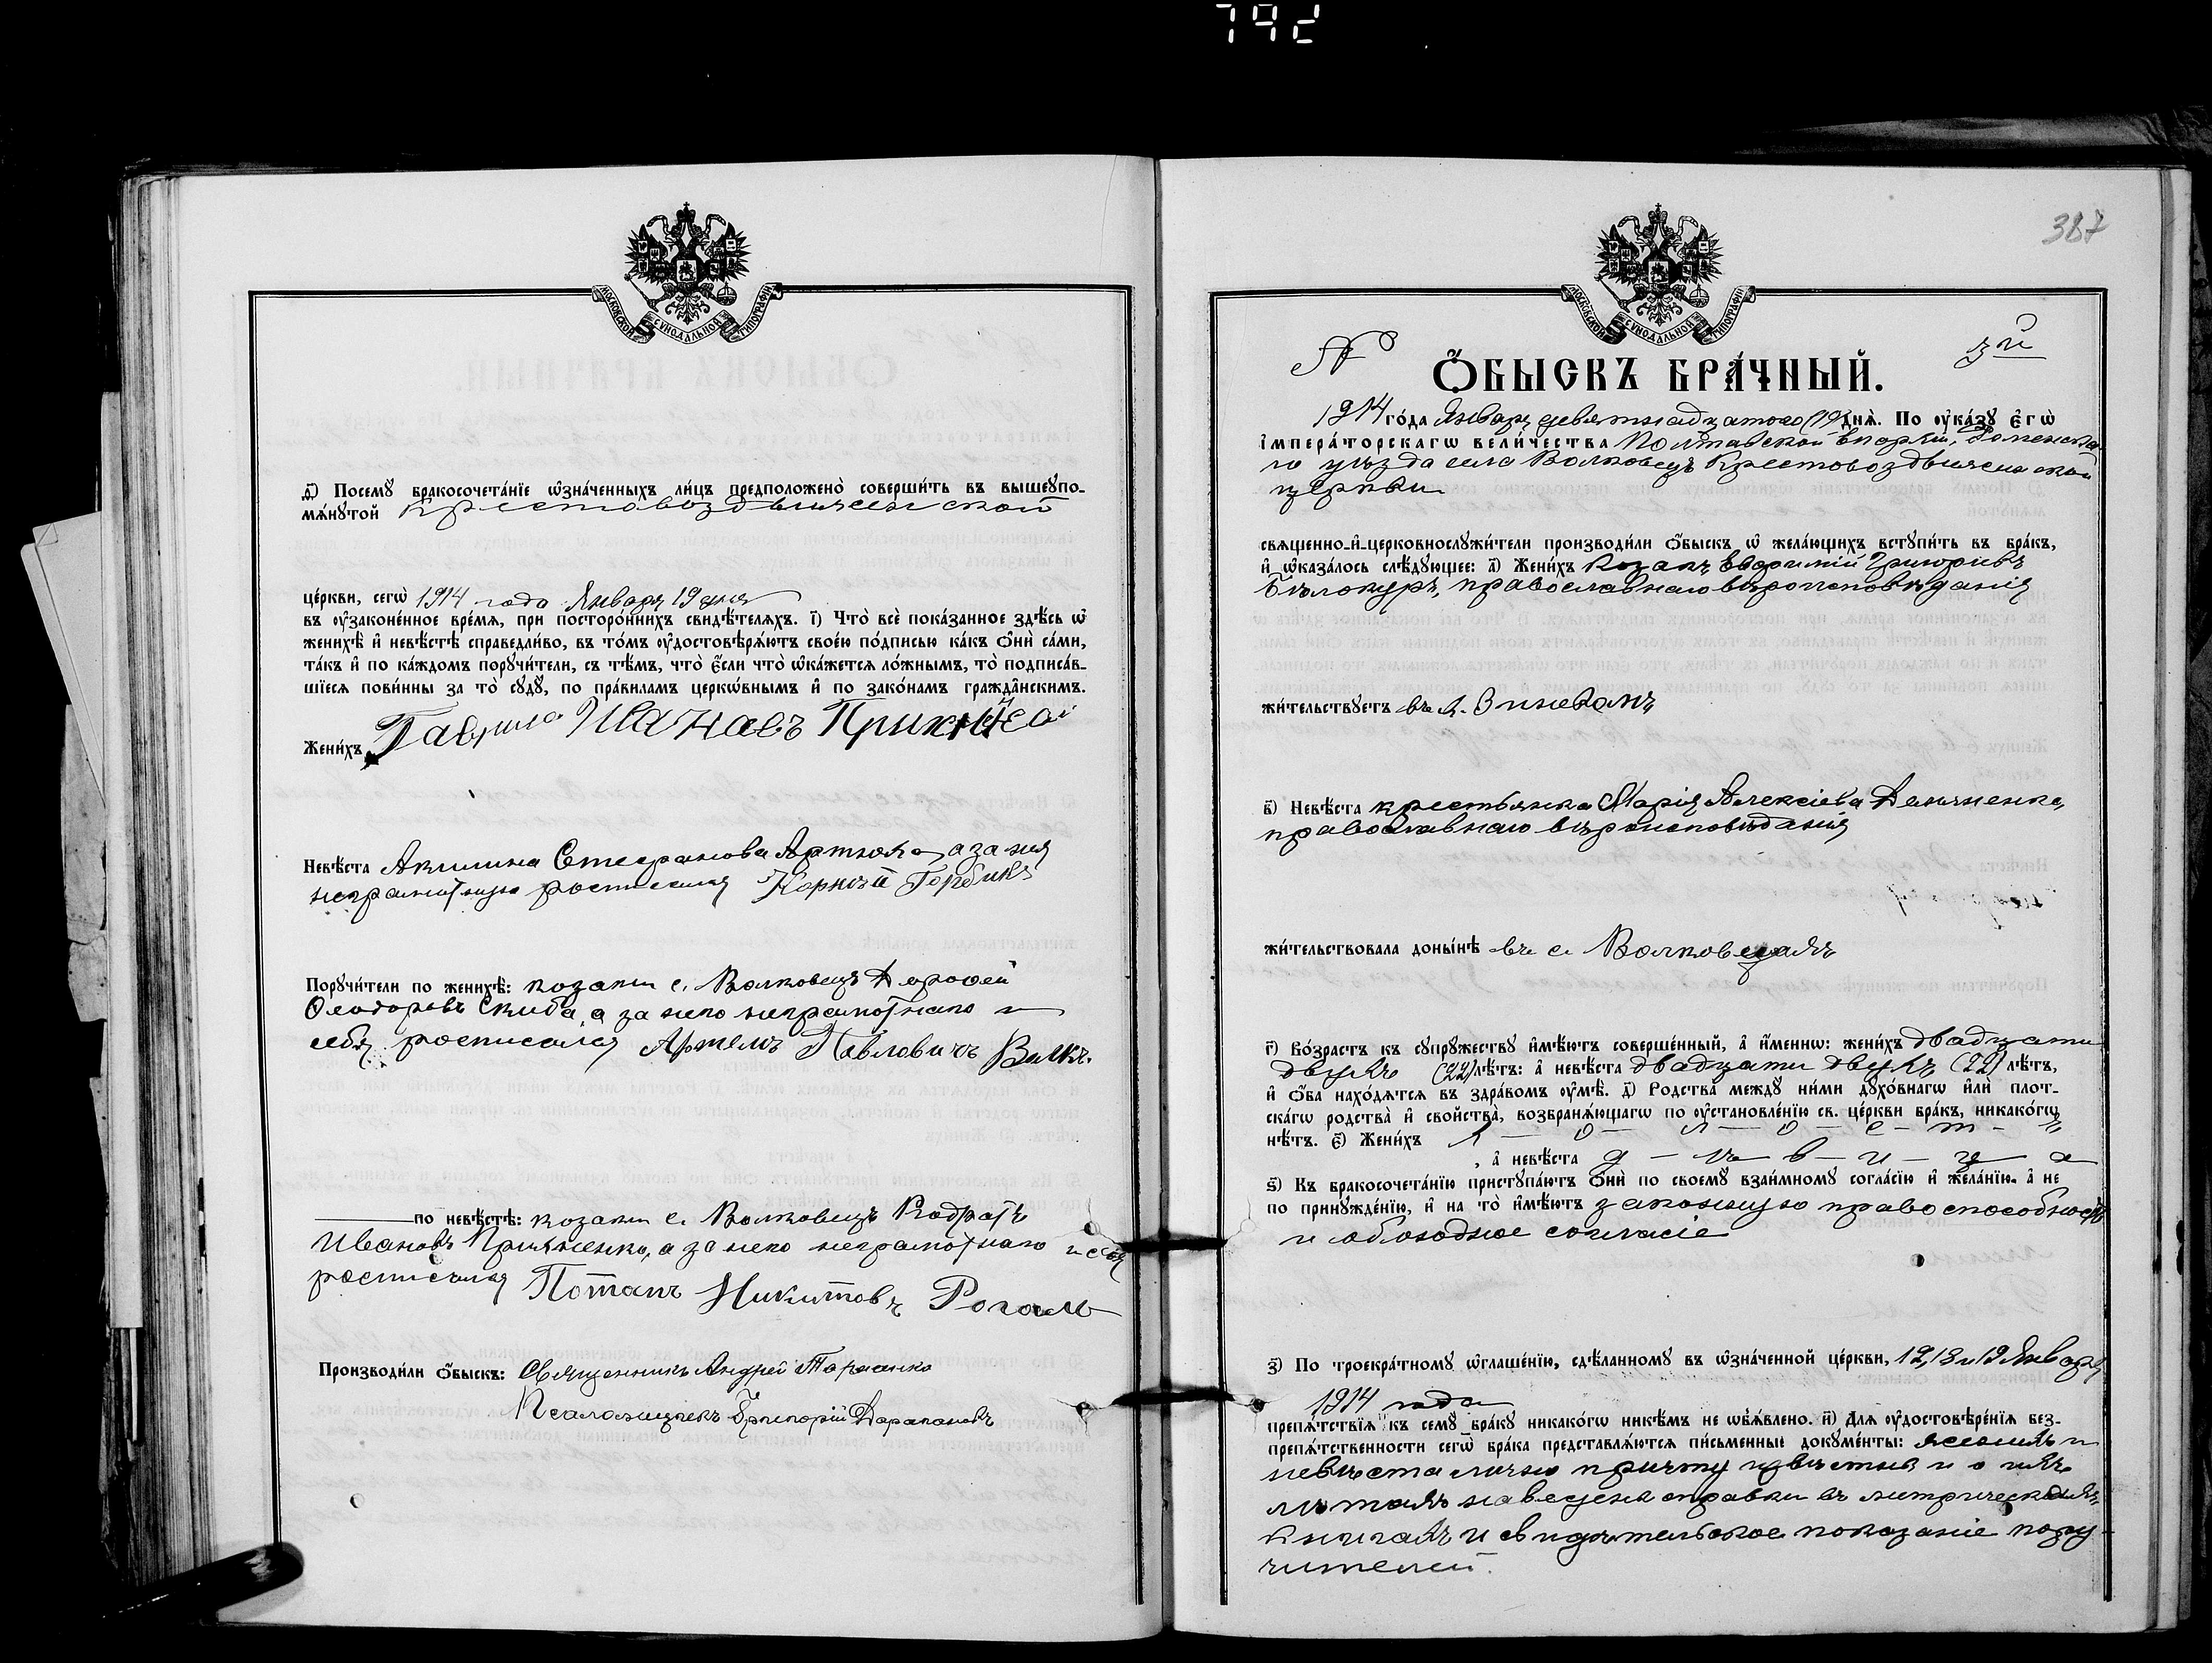 792
МОСКОВСКОЙ СѴНОДАЛЬНОЙ ТИПОГРАФІИ
ѳ҃) Посемꙋ̀ бракосочета́нїе ѡ҆зна́ченныхъ ли́цъ предположено̀ соверши́ть въ вышеꙋпо-
мѧ́нꙋтой Крестовоздвиженской
це́ркви, сегѡ̀ 1914 года Января 19 дня
въ ᲂу҆зако́ненное вре́мѧ, при посторо́ннихъ свидѣ́телѧхъ. і҃) Что̀ всѐ пока́занное здѣ́сь ѡ҆
женихѣ̀ и҆ невѣ́стѣ справедли́во, въ то́мъ ᲂу҆достовѣрѧ́ютъ свое́ю по́дписью ка́къ ѻ҆нѝ са́ми,
та́къ и҆ по ка́ждомъ порꙋчи́тели, съ тѣ́мъ, что̀ є҆́сли что̀ ѡ҆ка́жетсѧ ло́жнымъ, то̀ подписа́в-
шїесѧ пови́нны за то̀ сꙋдꙋ̀, по пра́виламъ церко́внымъ и҆ по зако́намъ гражда̂нскимъ.
Жени́хъ Гаврило Иванавъ
Невѣ́ста Акилина Стефанова Артюха, а за нея
неграмотную росписался Корней Горбикъ
Порꙋчи́тели по женихѣ̀: козаки с. Волковецъ Дорофей
Феодоровъ Скиба, а за него неграмотнаго и
себя росписался Артемъ Павловичъ Вилкъ.
по невѣ́стѣ: козаки с. Волковецъ Кодратъ
Ивановъ а за него неграмотнаго и себя
росписался Потапъ Никитовъ Рогаль
Производи́ли ѻ҆́быскъ: Священникъ Андрей
Псаломщикъ Григорій
387
МОСКОВСКОЙ СѴНОДАЛЬНОЙ ТИПОГРАФІИ
№ 3й
Ѻ҆́БЫСКЪ БРА́ЧНЫЙ.
1914 го́да Января девятнадцатого (19) днѧ̀. По ᲂу҆ка́зꙋ Є҆гѡ̀
і҆мпера́торскагѡ вели́чества Полтавской Епархіи, Роменска-
го уѣзда села Волковецъ Крестовоздвиженской
церкви
свѧще́нно-и҆-церковнослꙋжи́тели производи́ли ѻ҆́быскъ ѡ҆ жела́ющихъ встꙋпи́ть въ бра́къ,
и҆ ѡ҆каза́лось слѣ́дꙋющее: а҃) Жени́хъ Козакъ Евфимій Григорьевъ
Бѣлокуръ, православнаго вѣроисповѣданія
жи́тельствꙋетъ въ
в҃) Невѣ́ста крестьянка Марія Алексіева
православнаго вѣроисповѣданія
жи́тельствовала доны́нѣ въ с. Волковцахъ
г҃) Во́зрастъ къ сꙋпрꙋ́жествꙋ и҆мѣ́ютъ соверше́нный, а҆ и҆́меннѡ: жени́хъ двадцати
двухъ (22) лѣ́тъ: а҆ невѣ́ста двадцати двухъ (22) лѣ́тъ,
и҆ ѻ҆́ба нахо́дѧтсѧ въ здра́вомъ ᲂу҆мѣ̀. д҃) Родства̀ междꙋ ни́ми дꙋхо́внагѡ и҆лѝ плот-
ска́гѡ родства̀ и҆ сво́йства, возбранѧ́ющагѡ по ᲂу҆становле́нїю св. це́ркви бра́къ, никако́гѡ
нѣ́тъ. є҃) Жени́хъ х — о — л — о — с — т — ъ
, а҆ невѣ́ста д — ѣ — в — и — ц — а
ѕ҃) Къ бракосочета́нїю пристꙋпа́ютъ ѻ҆нѝ по своемꙋ̀ взаи́мномꙋ согла́сїю и҆ жела́нїю, а҆ не
по принꙋжде́нїю, и҆ на то̀ и҆мѣ́ютъ законную правоспособность
и обоюдное согласіе
з҃) По троекра́тномꙋ ѡ҆глаше́нїю, сдѣ́ланномꙋ въ ѡ҆зна́ченной це́ркви, 12, 13 и 19 Января
1914 года
препѧ́тствїѧ къ семꙋ̀ бра́кꙋ никако́гѡ никѣ́мъ не ѡ҆б̾ѧ́влено. и҃) Длѧ ᲂу҆достовѣре́нїѧ без-
препѧ́тственности сегѡ̀ бра́ка представлѧ́ютсѧ пи́сьменные докꙋме́нты: женихъ и
невѣста лично причту извѣстны и о ихъ
лѣтахъ наведены справки въ метрическихъ
книгахъ и свидѣтельское показаніе пору-
чителей.